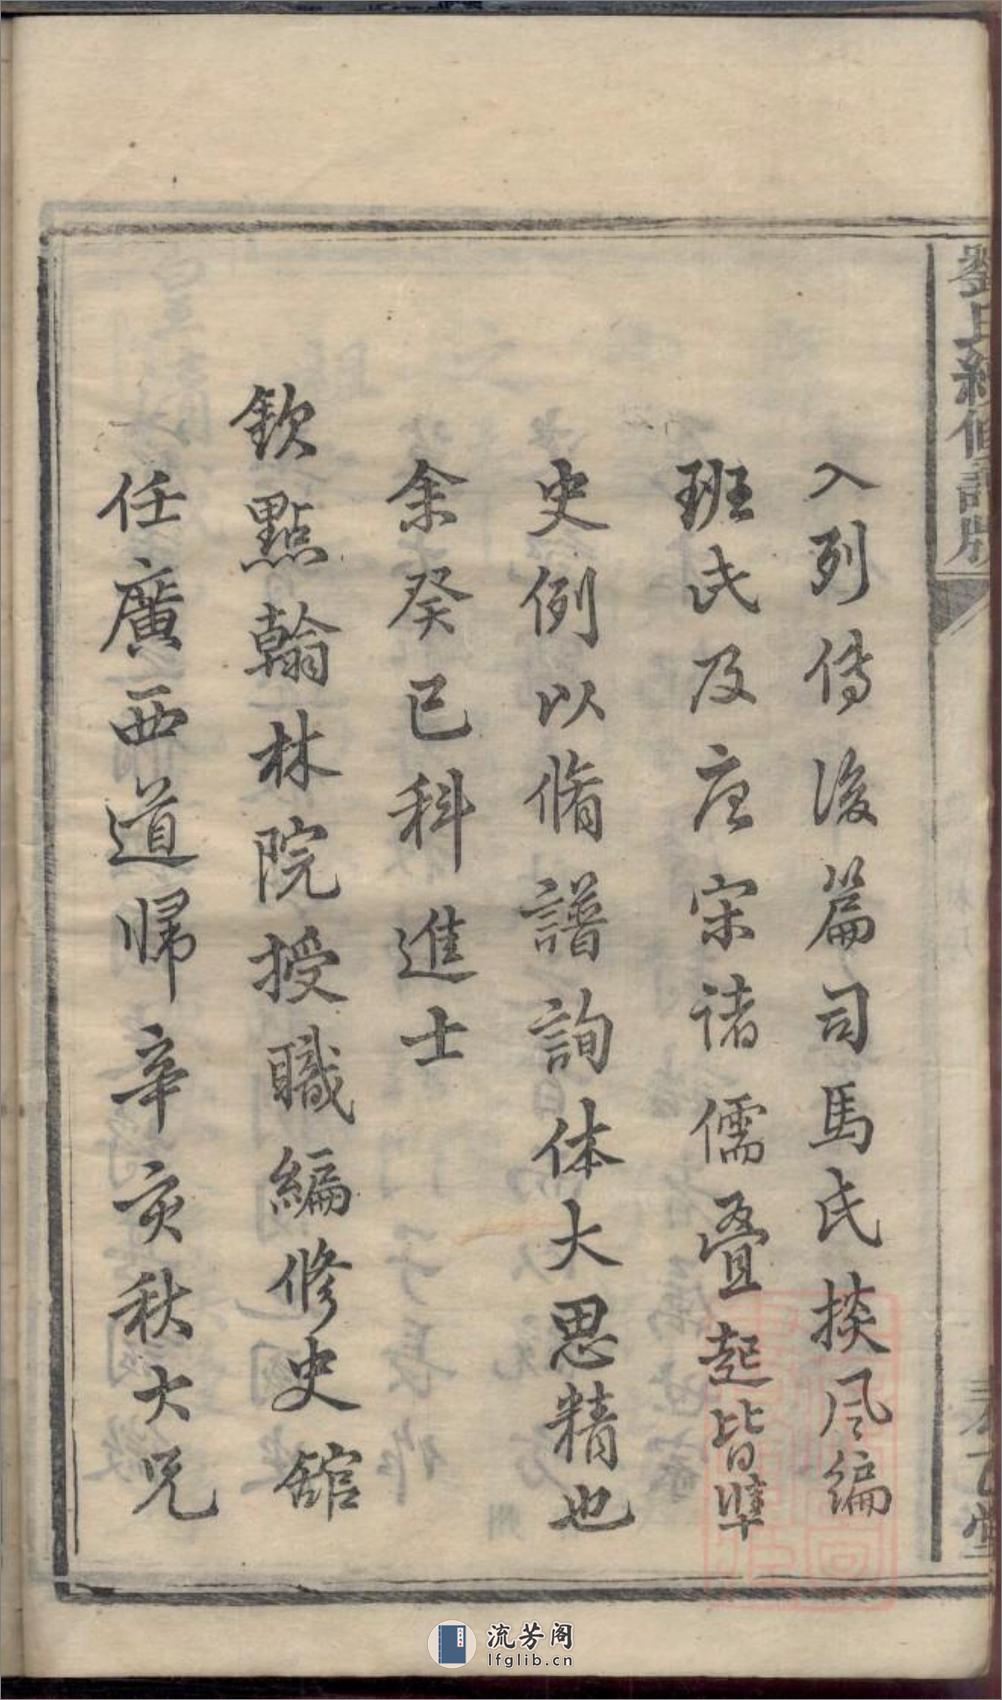 入列傳後篇司馬氏掞風編
班氏及唐宋諸儒疊起皆準
史例以脩譜詢体大思精也
余癸巳科進士
欽點翰林院授職編修史舘
任廣西道歸辛亥秋大兄
劉氏
流芳阁
lfglib.cn